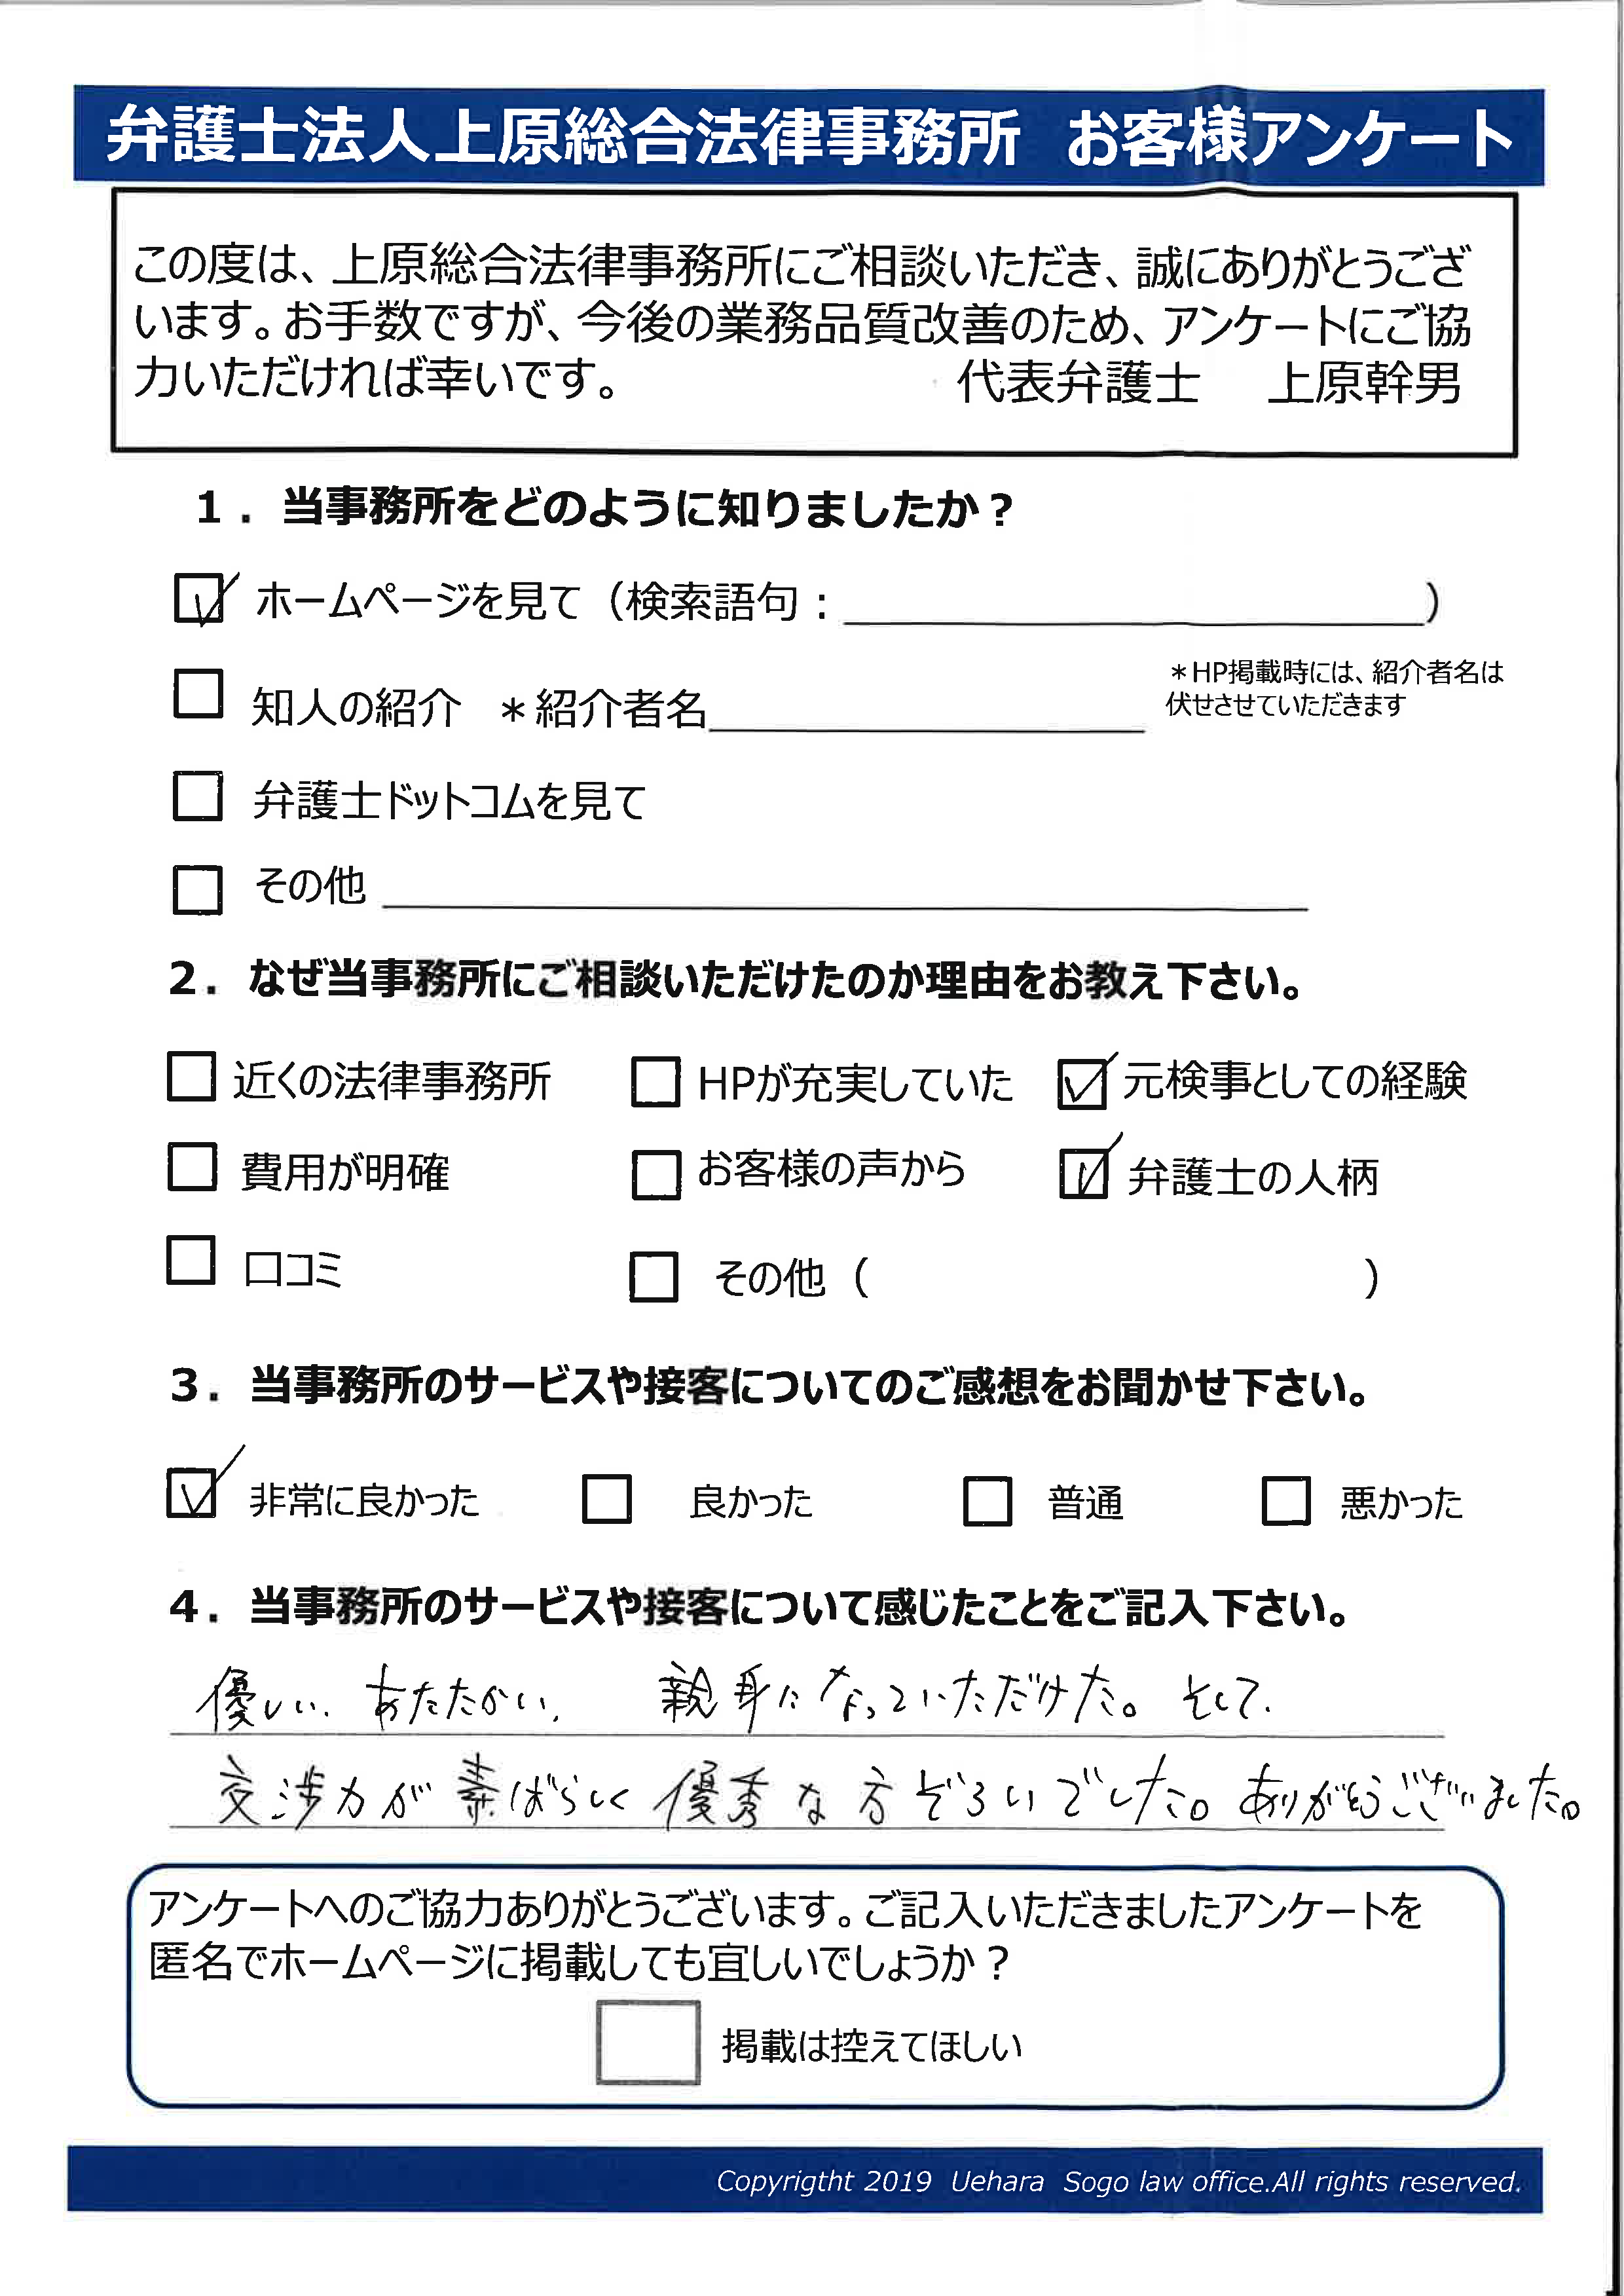 弁護士法人上原総合法律事務所 お客様アンケート
この度は、上原総合法律事務所にご相談いただき、誠にありがとうござ
います。お手数ですが、今後の業務品質改善のため、アンケートにご協
力いただければ幸いです。 代表弁護士 上原幹男
1．当事務所をどのように知りましたか？
☑ ホームページを見て（検索語句：＿＿＿＿＿＿）
☐ 知人の紹介 ＊紹介者名＿＿＿＿＿＿
＊HP掲載時には、紹介者名は
伏せさせていただきます
☐ 弁護士ドットコムを見て
☐ その他 ＿＿＿＿＿＿
2．なぜ当事務所にご相談いただけたのか理由をお教え下さい。
☐ 近くの法律事務所 ☐ HPが充実していた ☑ 元検事としての経験
☐ 費用が明確 ☐ お客様の声から ☑ 弁護士の人柄
☐ 口コミ ☐ その他（ ）
3．当事務所のサービスや接客についてのご感想をお聞かせ下さい。
☑ 非常に良かった ☐ 良かった ☐ 普通 ☐ 悪かった
4．当事務所のサービスや接客について感じたことをご記入下さい。
優しい、あたたかい、 親身になっていただけた。そして、
交渉力が素ばらしく優秀な方ぞろいでした。ありがとうございました。
アンケートへのご協力ありがとうございます。ご記入いただきましたアンケートを
匿名でホームページに掲載しても宜しいでしょうか？
☐ 掲載は控えてほしい
Copyrigtht 2019 Uehara Sogo law office.All rights reserved.